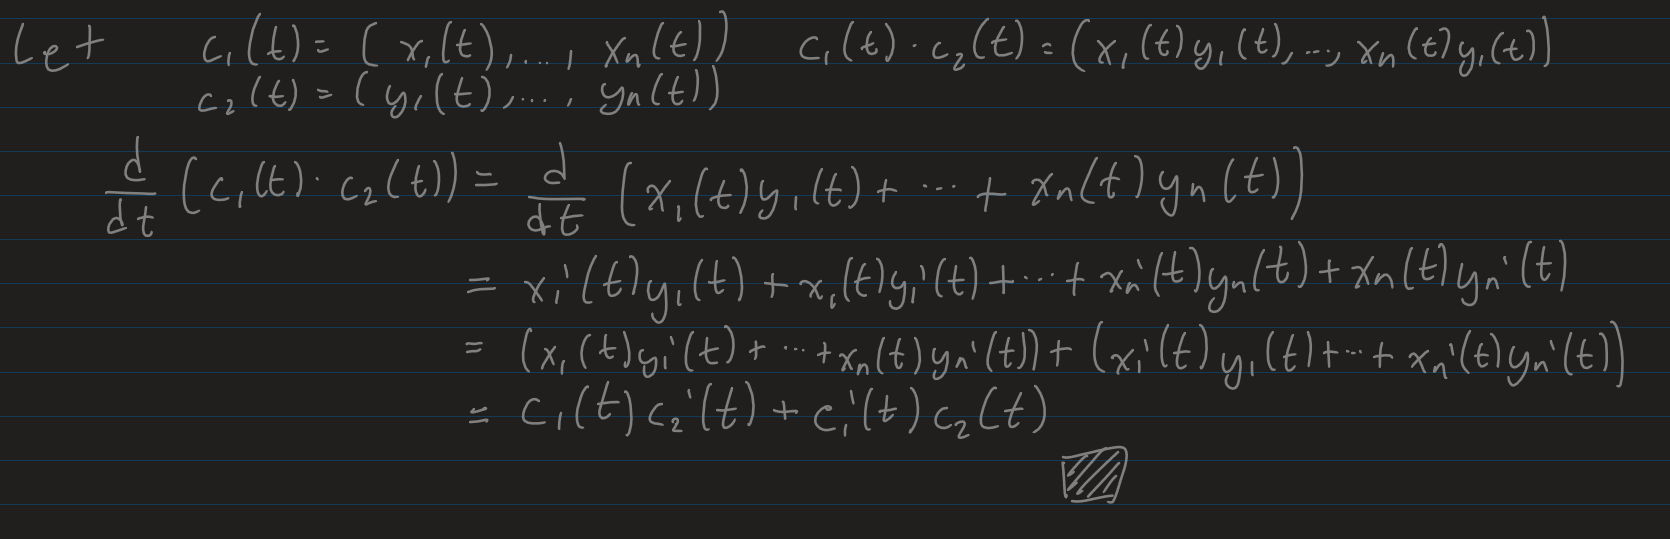 Let c₁(t) = (x₁(t), ..., xₙ(t)) c₁(t) · c₂(t) = (x₁(t)y₁(t), ..., xₙ(t)y₁(t))
c₂(t) = (y₁(t), ..., yₙ(t))
d/dt (c₁(t) · c₂(t)) = d/dt (x₁(t)y₁(t) + ⋯ + xₙ(t)yₙ(t))
= x₁'(t)y₁(t) + x₁(t)y₁'(t) + ⋯ + xₙ'(t)yₙ(t) + xₙ(t)yₙ'(t)
= (x₁(t)y₁'(t) + ⋯ + xₙ(t)yₙ'(t)) + (x₁'(t)y₁(t) + ⋯ + xₙ'(t)yₙ'(t))
= c₁(t)c₂'(t) + c₁'(t)c₂(t)